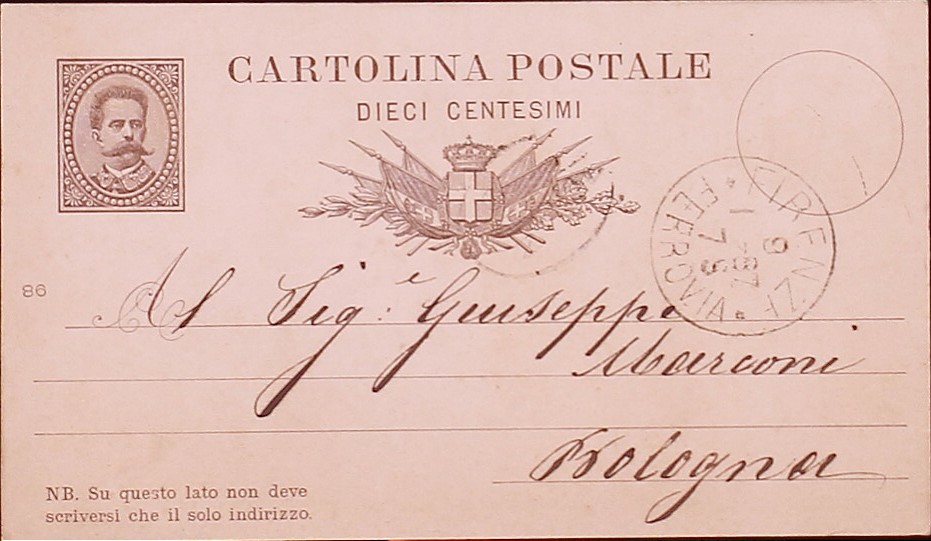 CARTOLINA POSTALE
DIECI CENTESIMI
FIRENZE
FERROVIA
9
1-87
7 S
86
Al Sig.re Giuseppe
Marconi
Bologna
NB. Su questo lato non deve
scriversi che il solo indirizzo.